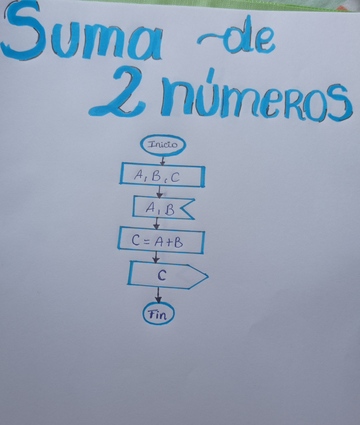 Suma de
2 números
Inicio
A, B, C
A, B
C = A + B
C
Fin